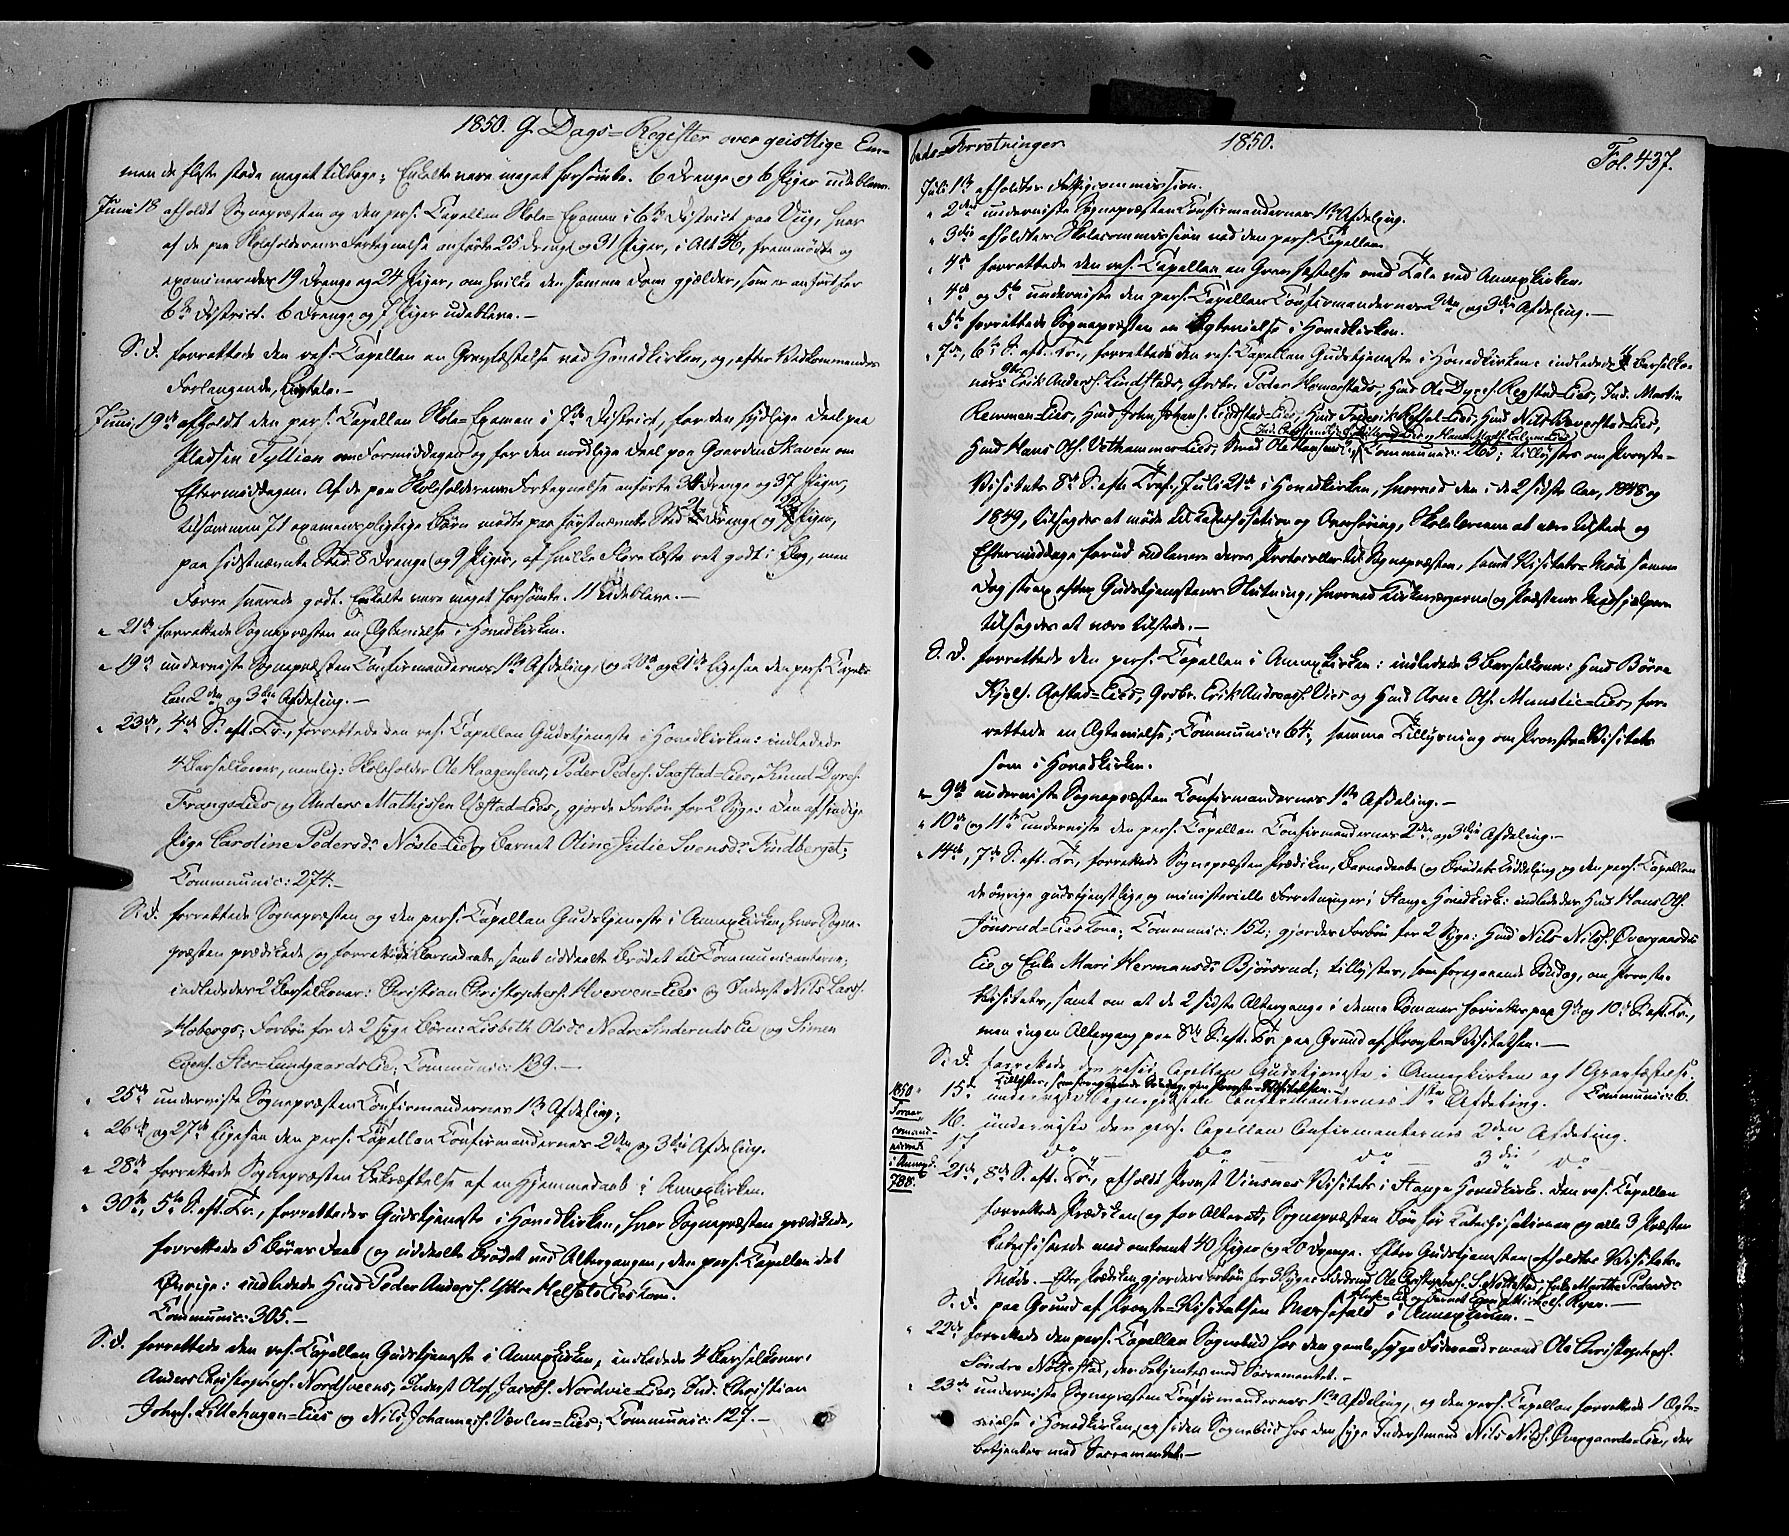 1850. G. Dags=Register over geistlige Em=
men de fleste stode meget tilbage; Enkelte vare meget forsømte. 6 Drenge og 6 Piger udebleve.
Juni 18 afholdt Sognepræsten og den pers. Capellan Skole=Examen i 6te District paa Viig, hvor
af de paa Skoleholderens Fortegnelse anførte 25 Drenge og 31 Piger, i Alt 56, fremmødte og
examineredes 19 Drenge og 24 Piger, om hvilke den samme Dom gjælder, som er anført for
6te District. 6 Drenge og 7 Piger udebleve.—
S. D. forrettede den res. Capellan en Gravfæstelse ved Hovedkirken, og, efter Vedkommendes
Forlangende, Ligtale.—
Juni 19de afholdt den pers. Capellan Skole Examen i 7de District, for den sydlige Deel paa
Pladsen Tyllien om Formiddagen og for den nordlige Deel paa Gaarden Skaven om
Eftermiddagen. Af de paa Skoleholderens Fortegnelse anførte 34 Drenge og 37 Piger,
tilsammen 71 examenspligtige Børn mødte paa førstnævnte Sted 21 Drenge og 22 Piger,
paa sidstnævnte Sted 8 Drenge og 9 Piger, af hvilke Flere læste ret godt i Bog, men
Færre svarede godt. Enkelte vare meget forsømte. 11 Udebleve.—
„ 21de forrettede Sognepræsten en Ægtevielse i Hovedkirken.
„ 19de underviste Sognepræsten Confirmandernes 1ste Afdeling, og 20de og 21de ligesaa den pers. Capel=
lan 2den og 3die Afdeling.—
„ 23de, 4de S. eft. Tr., forrettede den res. Capellan Gudstjeneste i Hovedkirken: indledede
4 Barselkoner, nemlig: Skoleholder Ole Haagensens, Peder Peders. Saxstad=Eies, Knud Dyres.
Frangs Eies, og Anders Mathissen Vestad=Eies, gjorde Forbøn for 2 Syge: Den afsindige
Pige Caroline Pedersdr Nøsle=Eie og Barnet Oline Julie Svensdr Findberget;
Communic: 274.—
S. D. forrettede Sognepræsten og den pers. Capellan Gudstjeneste i Annexkirken, hvor Sogne=
præsten prædikede og forrettede Barnedaab, samt uddeelte Brødet til Communicanterne;
indlededes 2 Barselkoner: Christian Christophers. Hverven=Eies og Inderst Nils Lars.
Hobergs; Forbøn for de 2 syge Børn: Lisbeth Olsdr Nedre Inderuds Eie og Simen
Stor=Lundgaards Eie; Communic: 139.—
„ 25de underviste Sognepræsten Confirmandernes 1ste Afdeling;
„ 26de og 27de ligesaa den pers. Capellan Confirmandernes 2den og 3die Afdeling.
„ 28de forrettede Sognepræsten Bekræftelse af en Hjemmedaab i Annexkirken.
„ 30te, 5te S. eft. Tr., forrettedes Gudstjeneste i Hovedkirken, hvor Sognepræsten prædikede,
forrettede 5 Børns Daab og uddeelte Brødet ved Altergangen, den pers. Capellan det
Øvrige: indledede Huusmd Peder Anders. Yttre Helsets Eies Kone.
Communic: 305.—
S. D. forrettede den res. Capellan Gudstjeneste i Annexkirken, indledede 4 Barselkoner:
Anders Christophers. Nordsveens, Inderst Oluf Jacobs. Nordvie=Eies, Ind. Christian
Johns. Lillehagen=Eies og Nils Johannes. Vævlen=Eies; Communic: 127.—
beds=Forretninger 1850. Fol. 437.
Juli 1ste afholdtes Fattigcommission.
„ 2den underviste Sognepræsten Confirmandernes 1ste Afdeling.
„ 3die afholdtes Skolecommission ved den pers. Capellan.
„ 4de forrettede den res. Capellan en Gravfæstelse med Tale ved Annexkirken.
„ 4de og 5te underviste den pers. Capellan Confirmandernes 2den og 3die Afdeling.—
„ 5te forrettede Sognepræsten en Ægtevielse i Hovedkirken.
„ 7de, 6te S. eft. Tr., forrettede den res. Capellan Gudstjeneste i Hovedkirken: indledede Barselko=
ner: Gbr. Erik Anders. Lindstads, Grbr. Peder Homerstads, Hmd Ole Dyres. Rogstad=Eies, Ind. Martin
Remmen=Eies, Hmd John Johans. Lindstad=Eies, Hmd Frederik Eies, Hmd Nils Bergestad=Eies,
Hmd Hans Ols. Vethammer=Eies, Smed Ole Hansens; Communic: 265; tillystes om Provste=
Visitats 8de S. efter Tref., Juli 21de i Hovedkirken, hvorved den i de 2 sidste Aar, 1848 og
1849, tilsagdes at møde til Katechisation og Overhøring, Skolelærerne at være tilstede og
Eftermiddagen forud indlevere deres Protocoller til Sognepræsten, samt Visitats=Møde samme
Dag strax efter Gudstjenestens Slutning, hvorved Kirkeværgerne og Præstens Medhjælpere
tilsagdes at være tilstede.—
S. D. forrettede den pers. Capellan i Annexkirken: indledede 3 Barselkoner: Hmd Børre
Kjels. Arstad=Eies, Grdbr. Erik Andreas. Vies og Hmd Arne Ols. Munstie=Eies, for=
rettede en Ægtevielse; Communic: 64, samme Tillysning om Provste=Visitats
som i Hovedkirken.
„ 9de underviste Sognepræsten Confirmandernes 1ste Afdeling.—
„ 10de og 11te underviste den pers. Capellan Confirmandernes 2den og 3die Afdeling.—
„ 14de, 7de S. eft. Tr., forrettede Sognepræsten Prædiken, Barnedaab og Brødets Uddeling og den pers. Capellan
de øvrige gudstjenstlige og ministerielle Forretninger i Stange Hovedkirke: indledede Hmd Hans Ols.
Jønsrud=Eies Kone; Communic: 152; gjordes Forbøn for 2 Syge: Hmd Nils Nils. Øvergaards
Eie og Enke Mari Hermansdr Bjørsrud; tillystes, som foregaaende Søndag, om Provste=
Visitats, samt om at de 2 sidste Altergange i denne Sommer forrettes paa 9de og 10de S. eft. Tr.,
men ingen Altergang paa 8de S. eft. Tr. paa Grund af Provste=Visitatsen.—
S. D. forrettede den resid. Capellan Gudstjeneste i Annexkirken og 1 Gravfæstelse.
Tillystes, som foregaaende Søndag, om Provste=Visitatsen.— Communic: 6.
15de underviste Sognepræsten Confirmanternes 1ste Afdeling.
16. underviste den pers. Capellan Confirmanternes 2den Afdeling.
17 — do — do — do — 3die do
1850
i Annex.
785.
„ 21de, 8de S. eft. Tr., afholdt Provst Vinsnes Visitats i Stange Hovedkirke. Den res. Capellan
forrettede Prædiken og for Alteret, Sognepræsten Bøn før Katechisationen og alle 3 Præster
katechiserede med omtrent 40 Piger og 20 Drenge. Efter Gudstjenesten afholdtes Visitats=
Møde.— Efter Prædiken gjordes Forbøn for 3 Syge: Føderaad Ole Christophers. S. Nøttestad, Enke Marthe Pedersdr
Eie og Barnet Mikkels. Ryen.—
S. D. paa Grund af Provste=Visitatsen Messefald i Annexkirken.—
„ 22de forrettede den pers. Capellan Sognebud hos den gamle, syge Føderaadsmand Ole Christophers.
Søndre Nøttestad, der betjentes med Sacramentet.—
„ 23de underviste Sognepræsten Confirmandernes 1ste Afdeling, og den pers. Capellan forrettede 1 Ægte=
vielse i Hovedkirken, og siden Sognebud hos den syge Inderstmand Nils Nils. Øvergaards=Eie, der
betjentes med Sacramentet.—